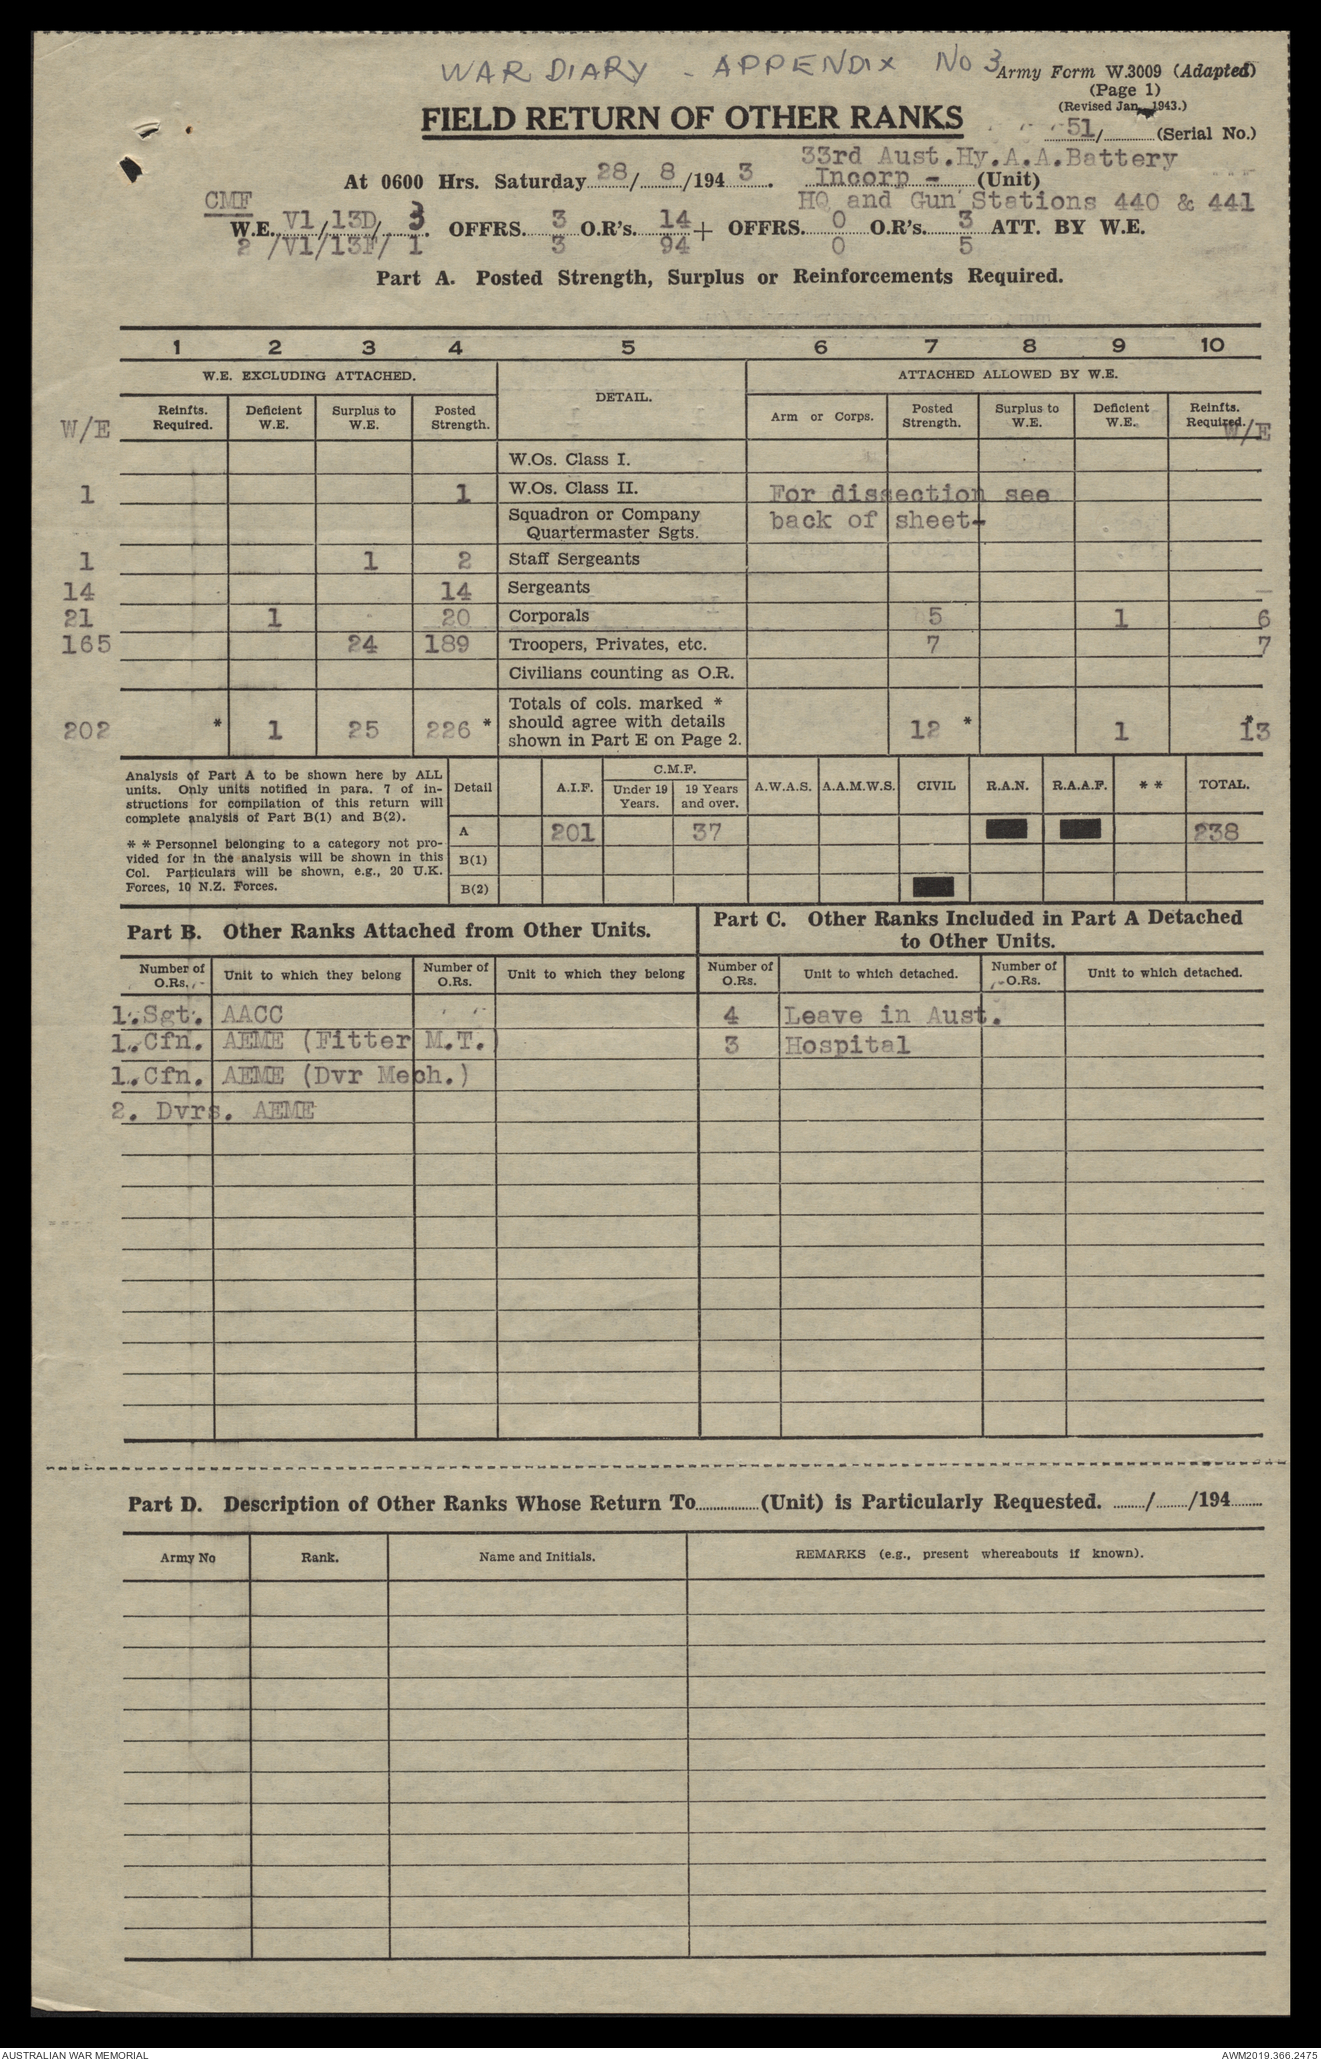 WAR DIARY - APPENDIX No 3
Army Form W.3009 (Adapted)
(Page 1)
(Revised Jan., 1943.)
FIELD RETURN OF OTHER RANKS
51/ (Serial No.)
33rd Aust.Hy.A.A.Battery
At 0600 Hrs. Saturday 28/ 8/194 3. Incorp - (Unit)
CMF HQ and Gun Stations 440 & 441
W.E. V1/13D/ 3. OFFRS. 3 O.R's. 14 + OFFRS. 0 O.R's. 3 ATT. BY W.E.
2 /V1/13F/ 1 3 94 0 5
Part A. Posted Strength, Surplus or Reinforcements Required.
1 2 3 4 5 6 7 8 9 10
W.E. EXCLUDING ATTACHED. DETAIL. ATTACHED ALLOWED BY W.E.
W/E Reinfts. Required. Deficient W.E. Surplus to W.E. Posted Strength. Arm or Corps. Posted Strength. Surplus to W.E. Deficient W.E. Reinfts. Required. W/E
W.Os. Class I.
1 1 W.Os. Class II. For dissection see
Squadron or Company
Quartermaster Sgts. back of sheet-
1 1 2 Staff Sergeants
14 14 Sergeants
21 1 - 20 Corporals 5 1 6
165 24 189 Troopers, Privates, etc. 7 7
Civilians counting as O.R.
Totals of cols. marked *
should agree with details
shown in Part E on Page 2.
202 * 1 25 226 * 12 * 1 * 13
Analysis of Part A to be shown here by ALL
units. Only units notified in para. 7 of in-
structions for compilation of this return will
complete analysis of Part B(1) and B(2).
* * Personnel belonging to a category not pro-
vided for in the analysis will be shown in this
Col. Particulars will be shown, e.g., 20 U.K.
Forces, 10 N.Z. Forces.
C.M.F.
Detail A.I.F. Under 19 Years. 19 Years and over. A.W.A.S. A.A.M.W.S. CIVIL R.A.N. R.A.A.F. * * TOTAL.
A 201 37 238
B(1)
B(2)
Part B. Other Ranks Attached from Other Units.
Part C. Other Ranks Included in Part A Detached
to Other Units.
Number of O.Rs. Unit to which they belong Number of O.Rs. Unit to which they belong Number of O.Rs. Unit to which detached. Number of O.Rs. Unit to which detached.
1.Sgt. AACC 4 Leave in Aust.
1.Cfn. AEME (Fitter M.T.) 3 Hospital
1.Cfn. AEME (Dvr Mech.)
2. Dvrs. AEME
Part D. Description of Other Ranks Whose Return To (Unit) is Particularly Requested. / /194
Army No Rank. Name and Initials. REMARKS (e.g., present whereabouts if known).
AUSTRALIAN WAR MEMORIAL
AWM2019.366.2475